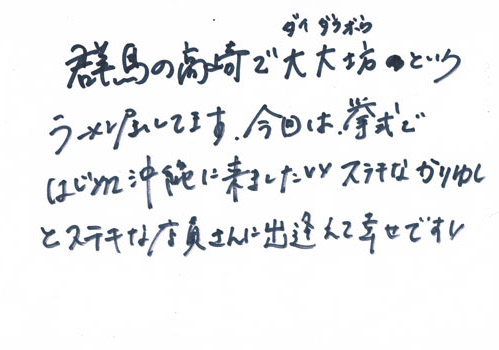 ダイ ダイボウ
群馬の高崎で大大坊という
ラーメン屋してます.今回は.挙式で
はじめ沖縄に来ました!! ステキなかりゆし
とステキな店員さんに出逢えて幸せです!